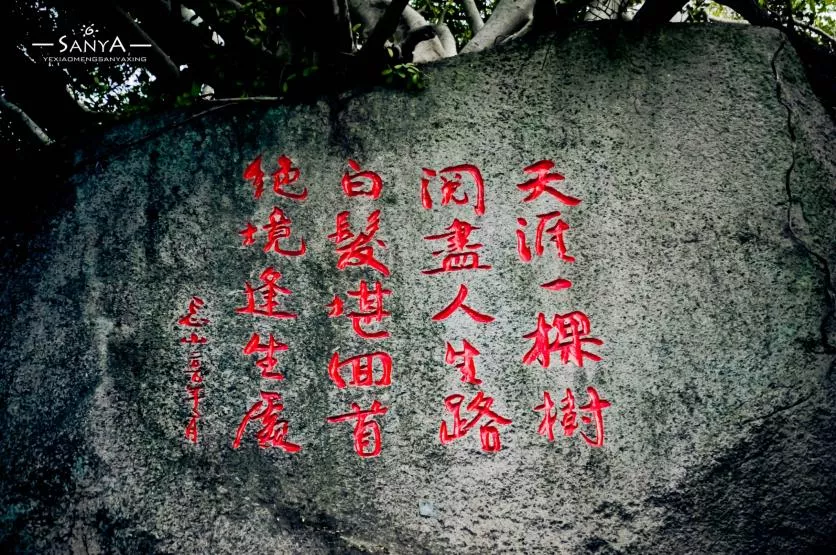 SANYA
YEXIAOMENGSANYAXING
天涯一棵樹
阅盡人生路
白髮堪回首
绝境逢生處